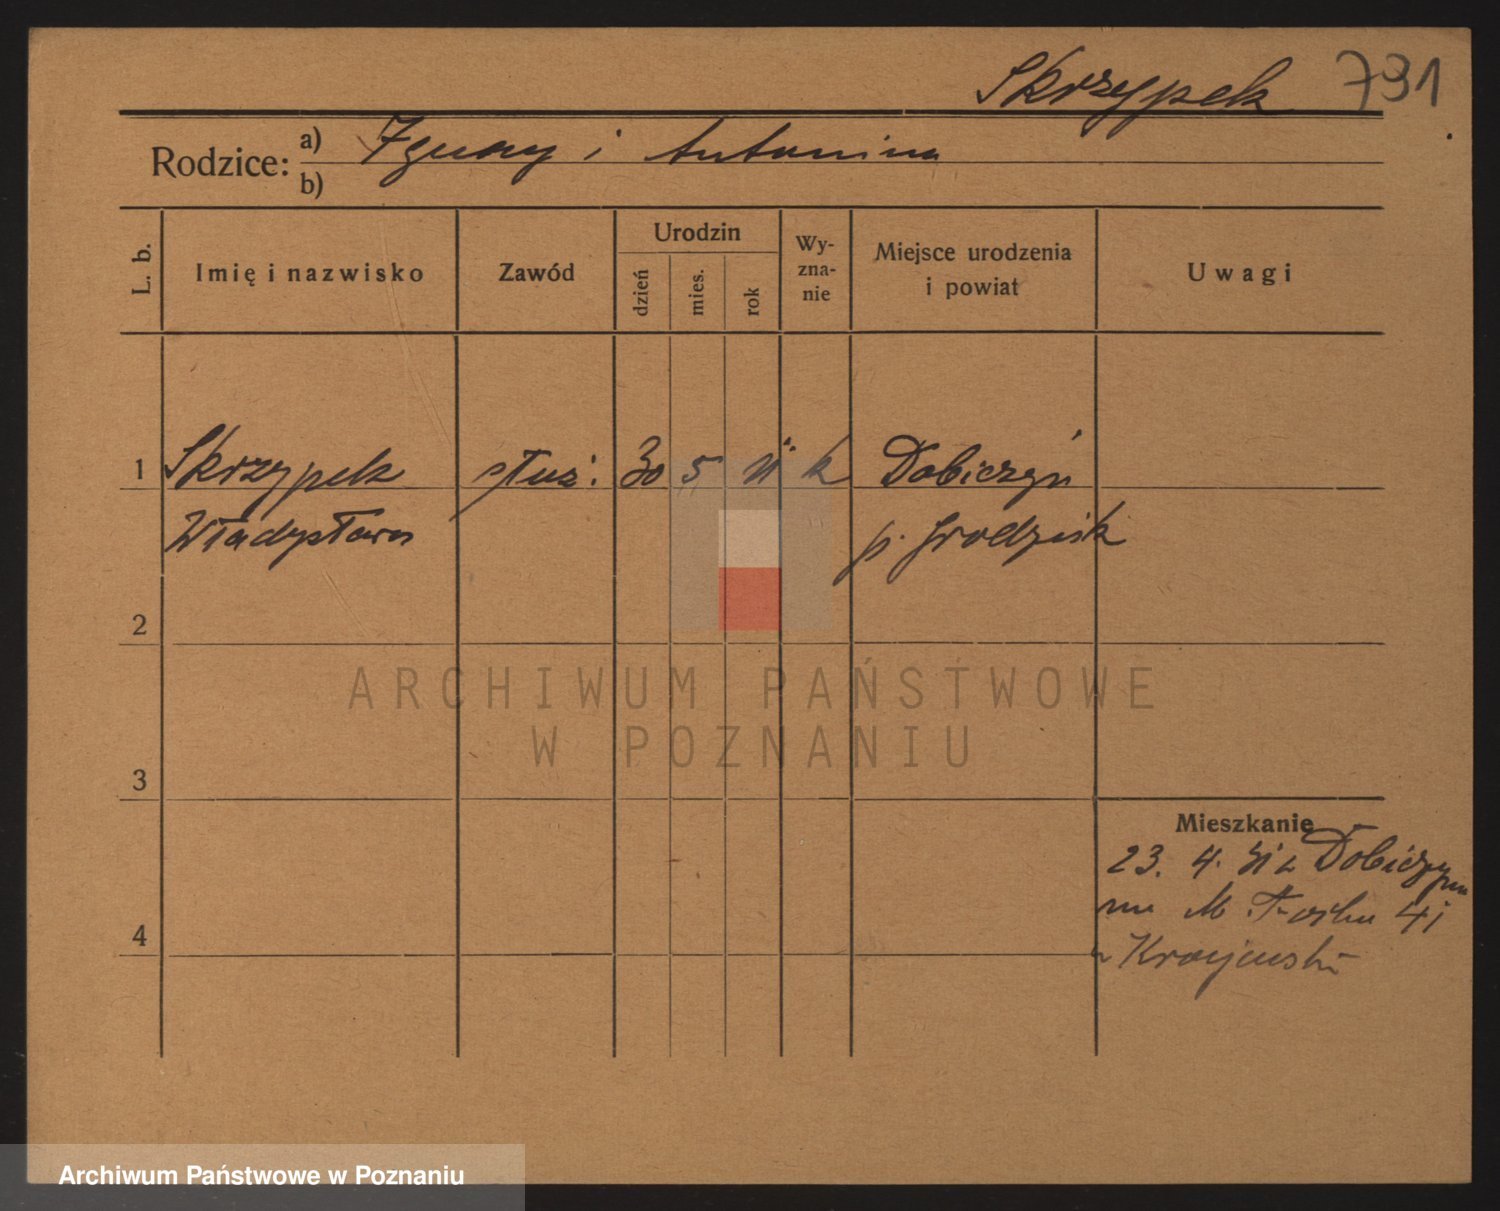 Skrzypek 791
Rodzice: a) Ignacy i Antonina
b)
L. b.
Imię i nazwisko
Zawód
Urodzin
dzień
mies.
rok
Wy-
zna-
nie
Miejsce urodzenia
i powiat
Uwagi
1 Skrzypek służ. 30 5 k Dobieżyn
Władysława p. Grodzisk
2
3
4
Mieszkanie
23. 4. z Dobieżyna
na M. Focha 41
ARCHIWUM PAŃSTWOWE
W POZNANIU
Archiwum Państwowe w Poznaniu